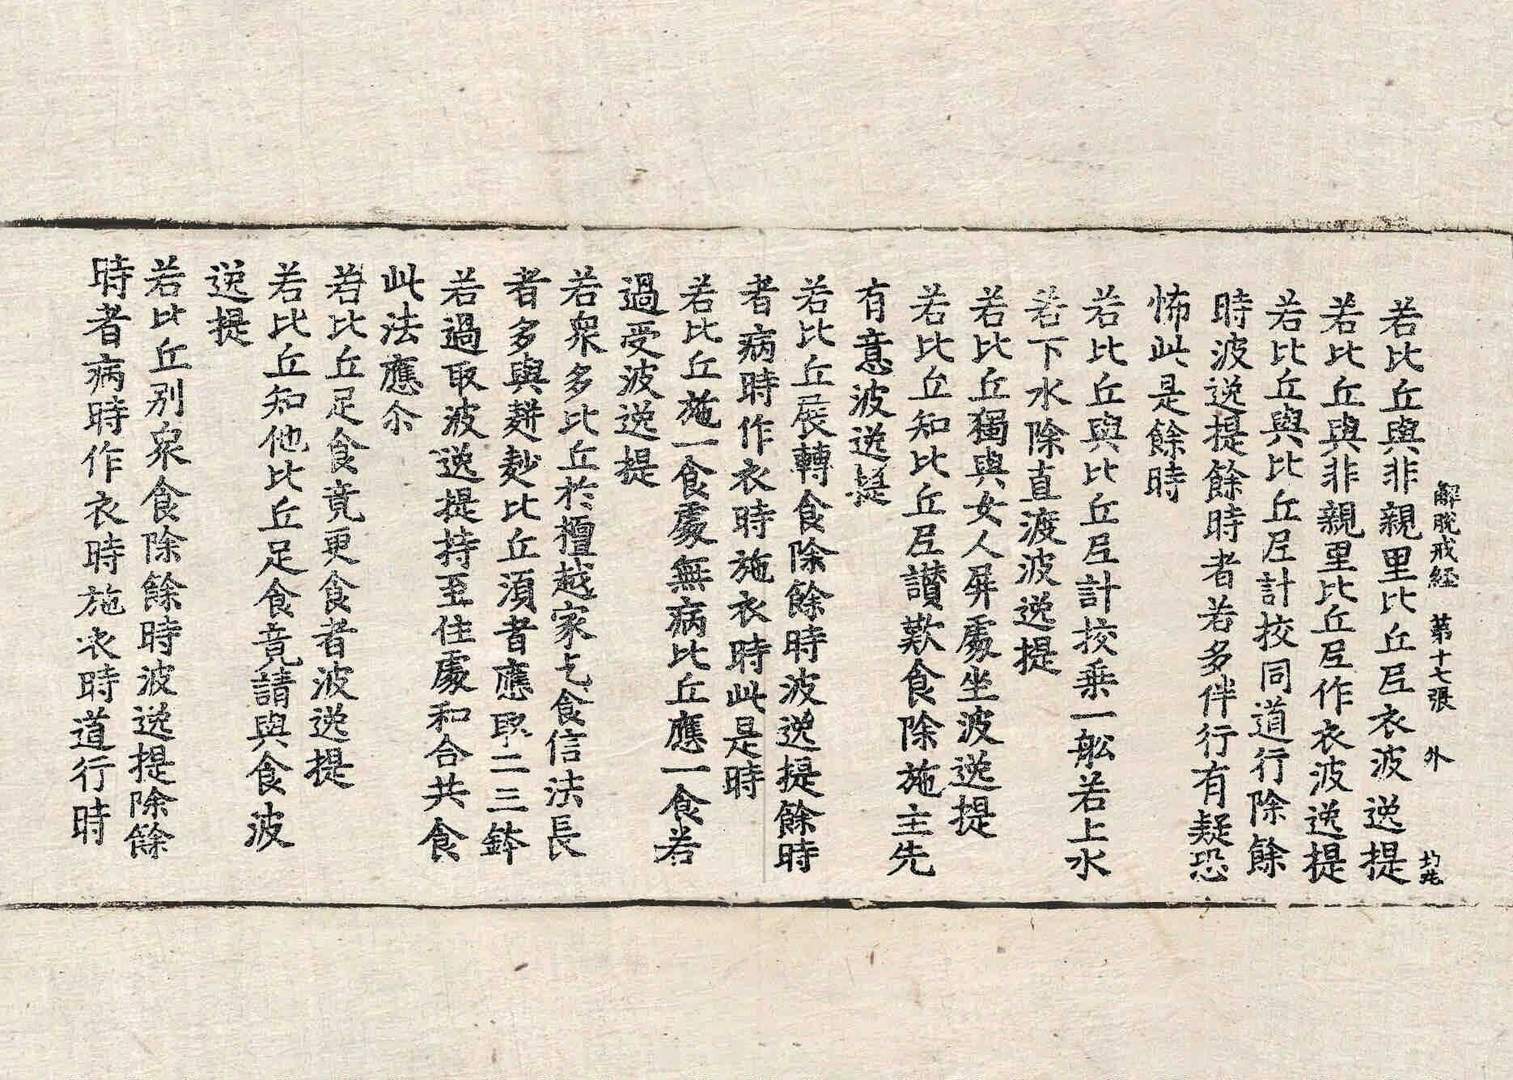 解脫戒経　第十七張　外
若比丘與非親里比丘𡰱衣波逸提
若比丘與非親里比丘𡰱作衣波逸提
若比丘與比丘𡰱計挍同道行除餘
時波逸提餘時者若多伴行有疑恐
怖此是餘時
若比丘與比丘𡰱計挍乗一舩若上水
若下水除直渡波逸提
若比丘獨與女人屏處坐波逸提
若比丘知比丘𡰱讃歎食除施主先
有意波逸提
若比丘展轉食除餘時波逸提餘時
者病時作衣時施衣時此是時
若比丘施一食處無病比丘應一食若
過受波逸提
若衆多比丘於檀越家乞食信法長
者多與麨比丘湏者應取二三鉢
若過取波逸提持至住處和合共食
此法應尒
若比丘足食竟更食者波逸提
若比丘知他比丘足食竟請與食波
逸提
若比丘別衆食除餘時波逸提除餘
時者病時作衣時施衣時道行時